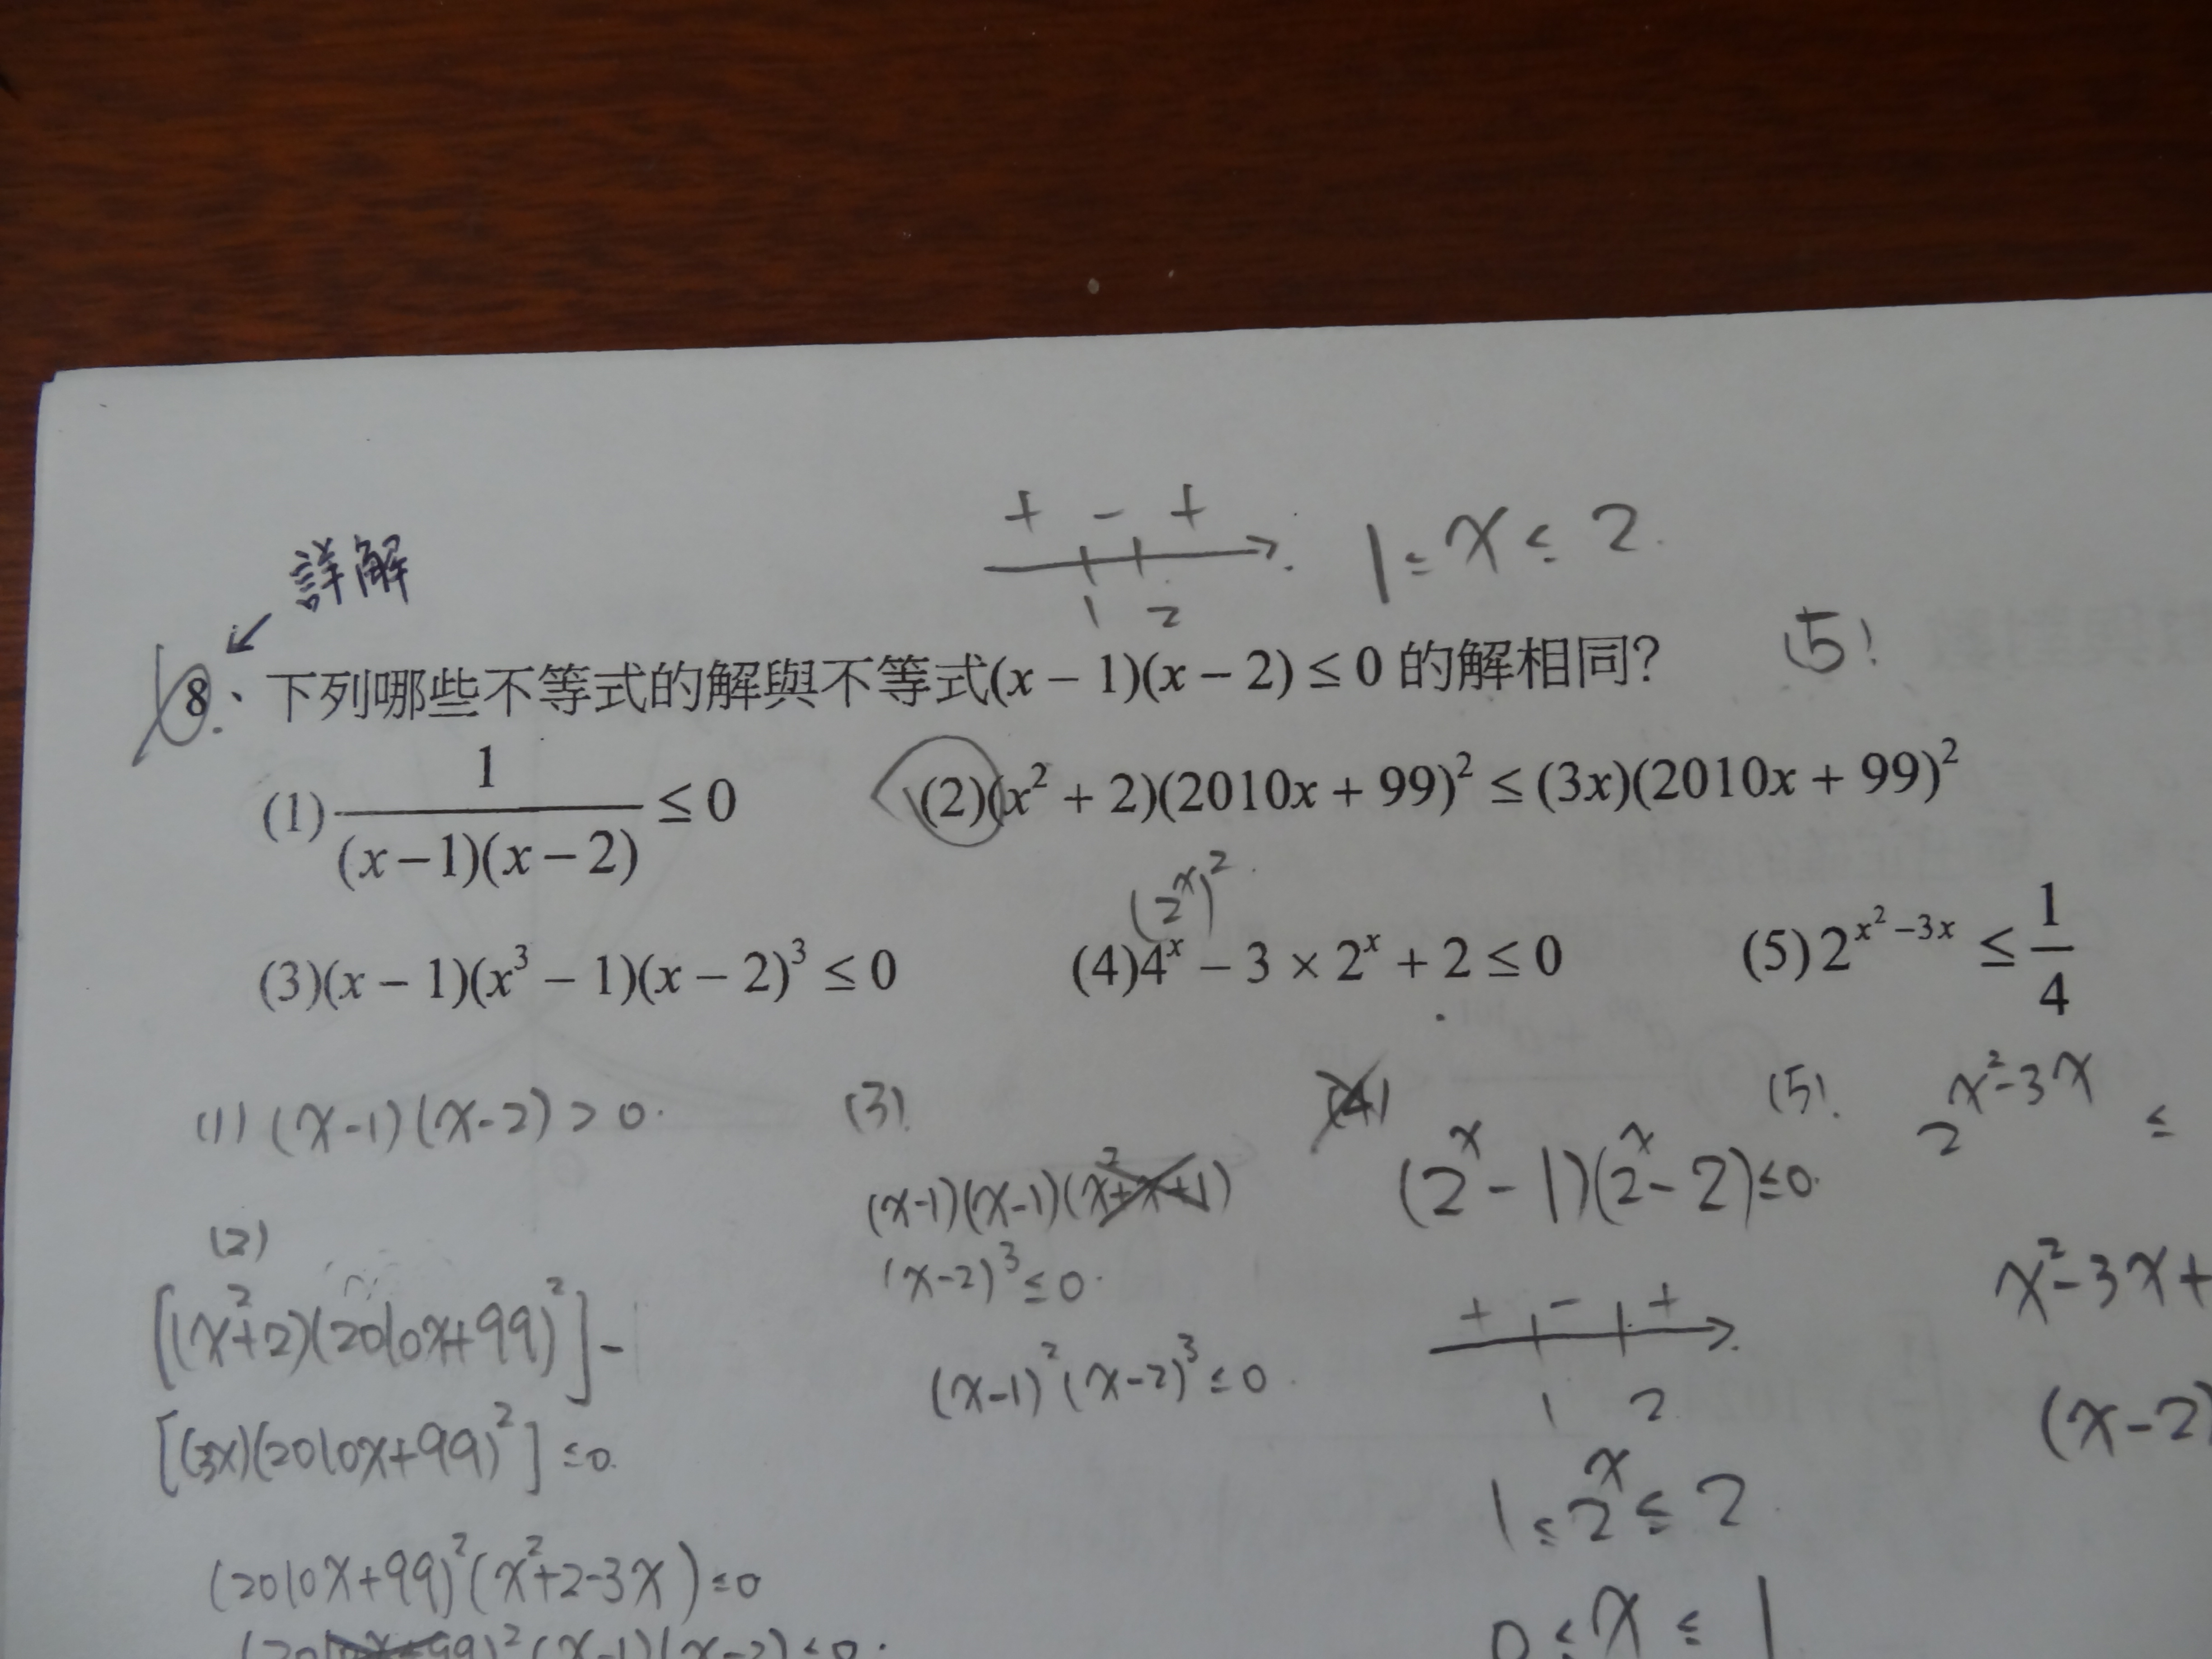 + - +
1 2
1 ≤ x ≤ 2
詳解
8、下列哪些不等式的解與不等式(x − 1)(x − 2) ≤ 0 的解相同?
(5)
(1) 1/((x−1)(x−2)) ≤ 0
(2)(x² + 2)(2010x + 99)² ≤ (3x)(2010x + 99)²
(2ˣ)²
(3)(x − 1)(x³ − 1)(x − 2)³ ≤ 0
(4)4ˣ − 3 × 2ˣ + 2 ≤ 0
(5) 2^(x²−3x) ≤ 1/4
(1) (x-1)(x-2) > 0
(2)
[(x²+2)(2010x+99)²] -
[(3x)(2010x+99)²] ≤ 0
(2010x+99)²(x²+2-3x) ≤ 0
(2010x+99)²(x-1)(x-2) ≤ 0
(3)
(x-1)(x-1)(x²+x+1)
(x-2)³ ≤ 0
(x-1)²(x-2)³ ≤ 0
(4)
(2ˣ-1)(2ˣ-2) ≤ 0
+ - +
1 2
1 ≤ 2ˣ ≤ 2
0 ≤ x ≤ 1
(5) 2^(x²-3x) ≤
x²-3x+
(x-2)